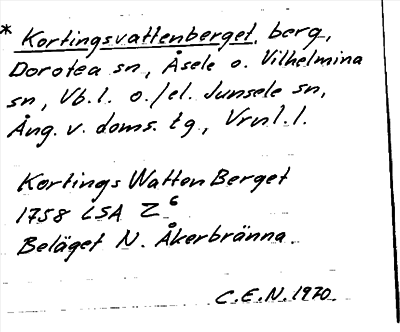 * Kortingsvattenberget, berg,
Dorotea sn, Åsele o. Vilhelmina
sn, Vb.l. o./el. Junsele sn,
Ång. v. doms. tg, Vrnl. l.
Kortings Watten Berget
1758 LSA Z⁶
Beläget N. Åkerbränna.
C.E.N. 1970.